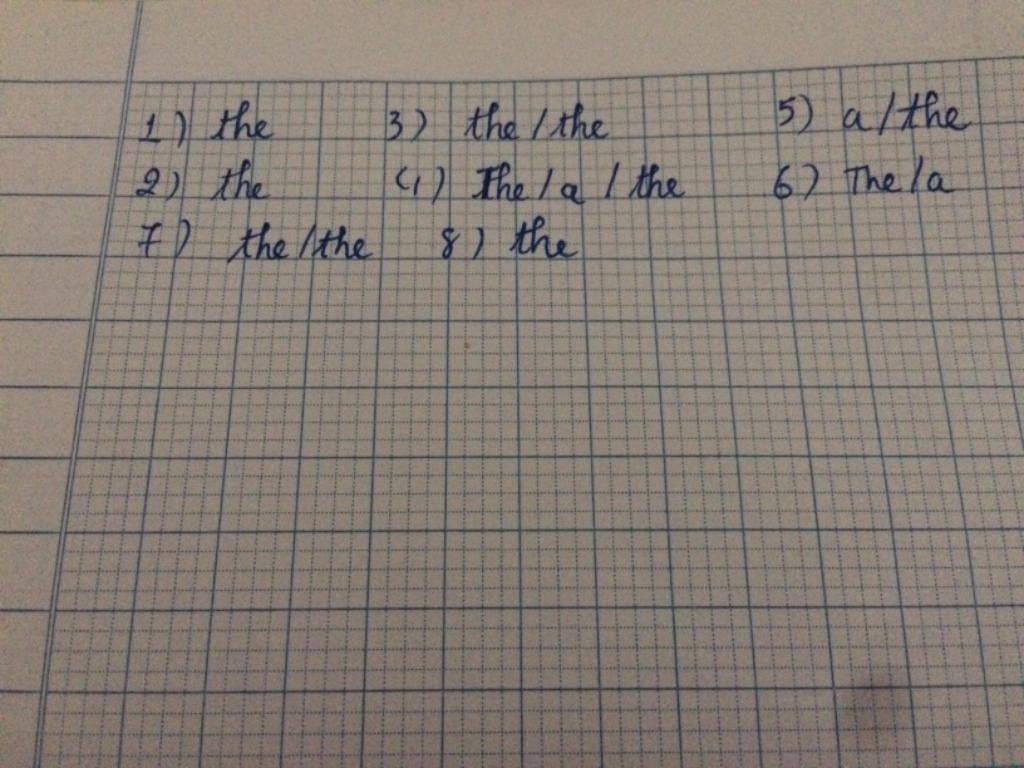 1) the 3) the / the 5) a / the
2) the 4) The / a / the 6) The / a
7) the / the 8) the